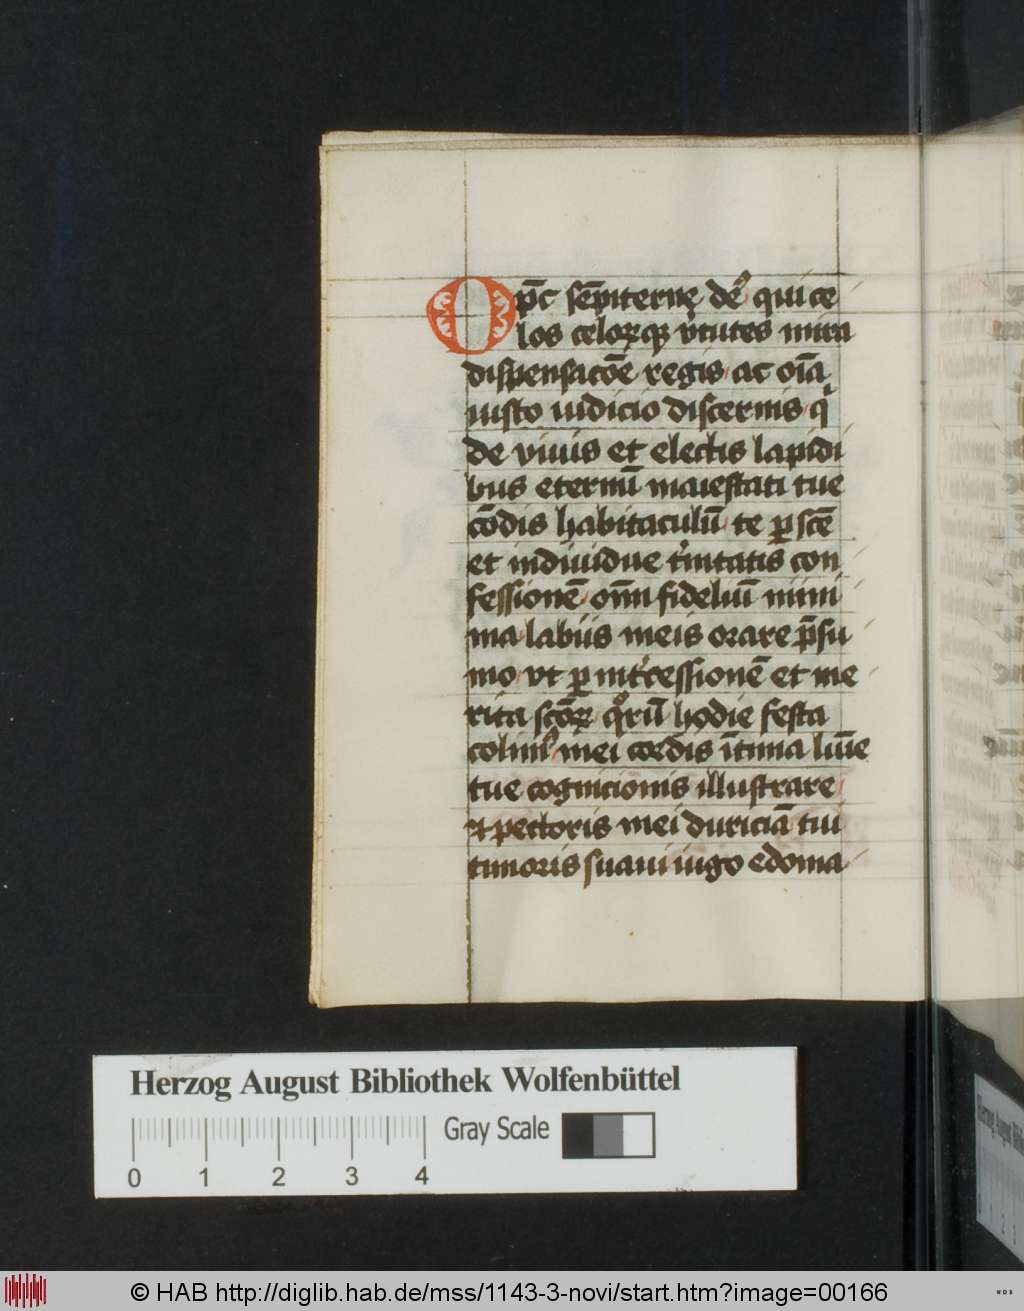 Op̄c sēpiterne deꝰ qui ce
los celorꝝqꝫ v̾tutes mira
dispensacōe regis ac oīa
iusto iudicio discernis qͥ
de viuis et electis lapidi
bus eternū maiestati tue
cōdis habitaculū te ꝑ scē
et indiuidue tͥnitatis con
fessionē om̄ fideliū mini
ma labiis meis orare p̄su
mo vt ꝑ int̾cessionē et me
rita scōꝝ qͦrū hodie festa
colimꝰ mei cordis ītima lum̄e
tue cognicionis illustrare
⁊ pectoris mei duriciā tui
timoris suaui iugo edoma
Herzog August Bibliothek Wolfenbüttel
Gray Scale
0 1 2 3 4
© HAB http://diglib.hab.de/mss/1143-3-novi/start.htm?image=00166